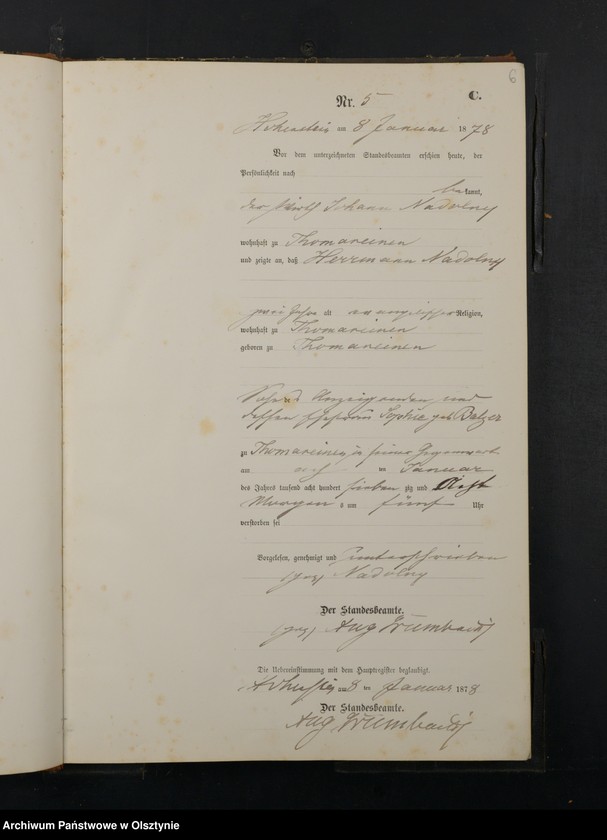 6
Nr. 5 C.
am 8 Januar 1878
Vor dem unterzeichneten Standesbeamten erschien heute, der
Persönlichkeit nach
bekannt,
der Wirth Johann Nadolny
wohnhaft zu Thomareinen
und zeigte an, daß Herrmann Nadolny
zwei Jahre alt evangelischer Religion,
wohnhaft zu Thomareinen
geboren zu Thomareinen
Sohn des Anzeigenden und
dessen Ehefrau Sophie geb Balzer
zu Thomareinen in seiner Gegenwart
am ten Januar
des Jahres tausend acht hundert sieben zig und Acht
Morgens um fünf Uhr
verstorben sei
Vorgelesen, genehmigt und unterschrieben
(gez) Nadolny
Der Standesbeamte.
(gez) Aug
Die Uebereinstimmung mit dem Hauptregister beglaubigt.
am 8 ten Januar 1878
Der Standesbeamte.
Aug
Archiwum Państwowe w Olsztynie